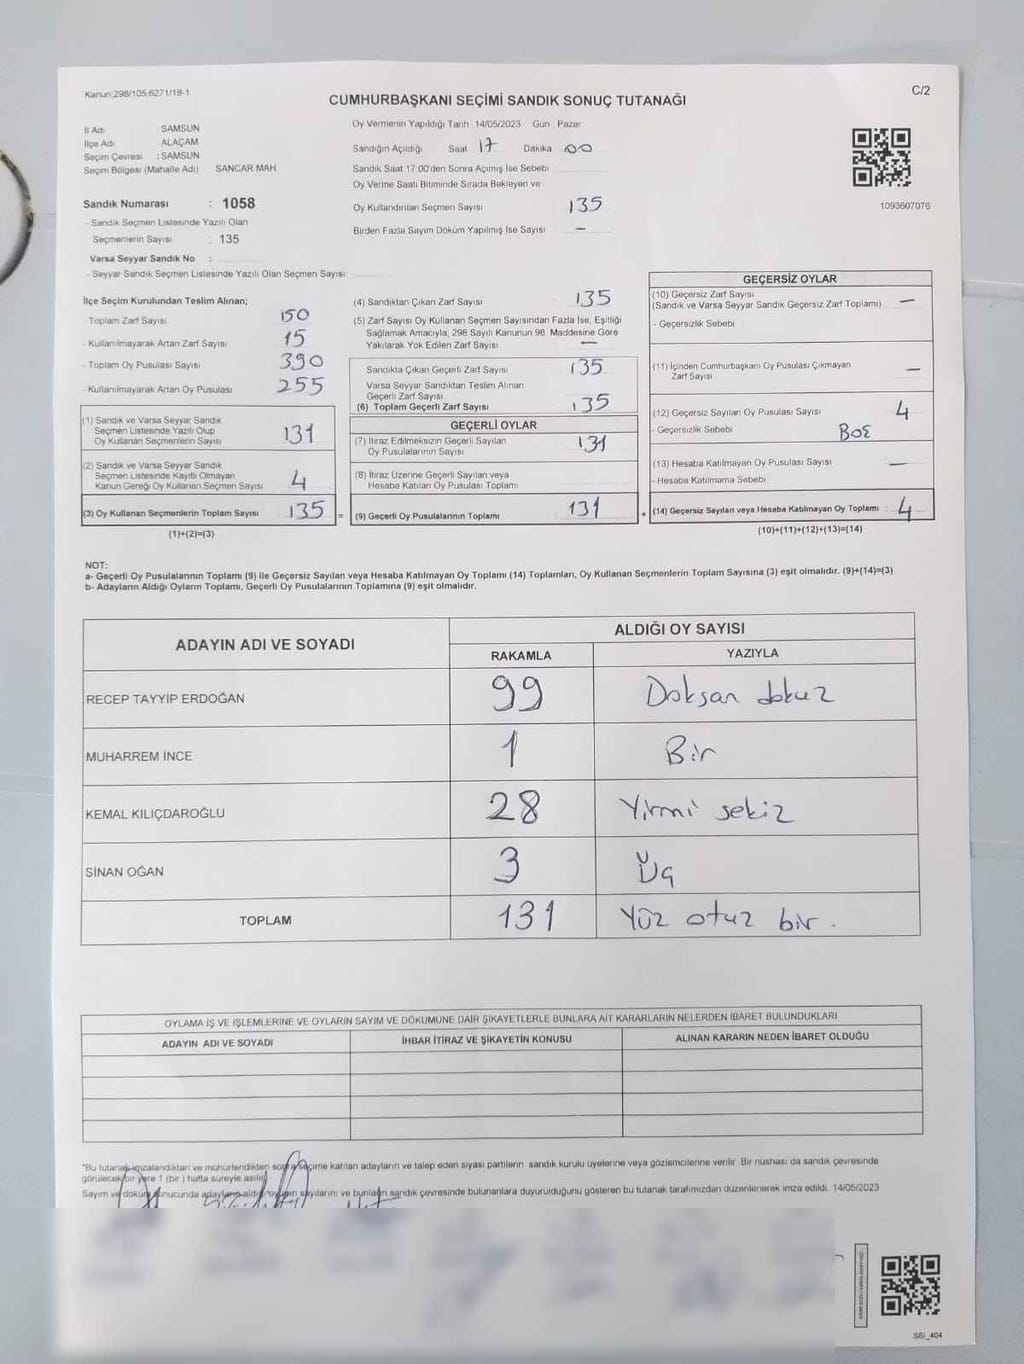 Kanun:298/105;6271/18-1
C/2
CUMHURBAŞKANI SEÇİMİ SANDIK SONUÇ TUTANAĞI
İl Adı : SAMSUN
İlçe Adı : ALAÇAM
Seçim Çevresi : SAMSUN
Seçim Bölgesi (Mahalle Adı) SANCAR MAH.
Sandık Numarası : 1058
- Sandık Seçmen Listesinde Yazılı Olan
Seçmenlerin Sayısı : 135
Varsa Seyyar Sandık No :
- Seyyar Sandık Seçmen Listesinde Yazılı Olan Seçmen Sayısı:
Oy Vermenin Yapıldığı Tarih 14/05/2023 Gün Pazar
Sandığın Açıldığı Saat 17 Dakika 00
Sandık Saat 17:00'den Sonra Açımış İse Sebebi
Oy Verme Saati Bitiminde Sırada Bekleyen ve
Oy Kullandırılan Seçmen Sayısı 135
Birden Fazla Sayım Döküm Yapılmış İse Sayısı —
1093607076
İlçe Seçim Kurulundan Teslim Alınan;
- Toplam Zarf Sayısı 150
- Kullanılmayarak Artan Zarf Sayısı 15
- Toplam Oy Pusulası Sayısı 390
- Kullanılmayarak Artan Oy Pusulası 255
(1) Sandık ve Varsa Seyyar Sandık
Seçmen Listesinde Yazılı Olup
Oy Kullanan Seçmenlerin Sayısı 131
(2) Sandık ve Varsa Seyyar Sandık
Seçmen Listesinde Kayıtlı Olmayan
Kanun Gereği Oy Kullanan Seçmen Sayısı 4
(3) Oy Kullanan Seçmenlerin Toplam Sayısı 135 =
(1)+(2)=(3)
(4) Sandıktan Çıkan Zarf Sayısı 135
(5) Zarf Sayısı Oy Kullanan Seçmen Sayısından Fazla İse, Eşitliği
Sağlamak Amacıyla; 298 Sayılı Kanunun 98. Maddesine Göre
Yakılarak Yok Edilen Zarf Sayısı —
Sandıkta Çıkan Geçerli Zarf Sayısı 135
Varsa Seyyar Sandıktan Teslim Alınan
Geçerli Zarf Sayısı
(6) Toplam Geçerli Zarf Sayısı 135
GEÇERLİ OYLAR
(7) İtiraz Edilmeksizin Geçerli Sayılan
Oy Pusulalarının Sayısı 131
(8) İtiraz Üzerine Geçerli Sayılan veya
Hesaba Katılan Oy Pusulası Toplamı
(9) Geçerli Oy Pusulalarının Toplamı 131 +
GEÇERSİZ OYLAR
(10) Geçersiz Zarf Sayısı
(Sandık ve Varsa Seyyar Sandık Geçersiz Zarf Toplamı) —
- Geçersizlik Sebebi
(11) İçinden Cumhurbaşkanı Oy Pusulası Çıkmayan
Zarf Sayısı —
(12) Geçersiz Sayılan Oy Pusulası Sayısı 4
- Geçersizlik Sebebi BOŞ
(13) Hesaba Katılmayan Oy Pusulası Sayısı —
- Hesaba Katılmama Sebebi
(14) Geçersiz Sayılan veya Hesaba Katılmayan Oy Toplamı : 4
(10)+(11)+(12)+(13)=(14)
NOT:
a- Geçerli Oy Pusulalarının Toplamı (9) ile Geçersiz Sayılan veya Hesaba Katılmayan Oy Toplamı (14) Toplamları, Oy Kullanan Seçmenlerin Toplam Sayısına (3) eşit olmalıdır. (9)+(14)=(3)
b- Adayların Aldığı Oyların Toplamı, Geçerli Oy Pusulalarının Toplamına (9) eşit olmalıdır.
ADAYIN ADI VE SOYADI ALDIĞI OY SAYISI
RAKAMLA YAZIYLA
RECEP TAYYİP ERDOĞAN 99 Doksan dokuz
MUHARREM İNCE 1 Bir
KEMAL KILIÇDAROĞLU 28 Yirmi sekiz
SİNAN OĞAN 3 Üç
TOPLAM 131 Yüz otuz bir.
OYLAMA İŞ VE İŞLEMLERİNE VE OYLARIN SAYIM VE DÖKÜMÜNE DAİR ŞİKAYETLERLE BUNLARA AİT KARARLARIN NELERDEN İBARET BULUNDUKLARI
ADAYIN ADI VE SOYADI İHBAR İTİRAZ VE ŞİKAYETİN KONUSU ALINAN KARARIN NEDEN İBARET OLDUĞU
*Bu tutanak imzalandıktan ve mühürlendikten sonra seçime katılan adayların ve talep eden siyasi partilerin sandık kurulu üyelerine veya gözlemcilerine verilir. Bir nüshası da sandık çevresinde
görülecek bir yere 1 (bir) hafta süreyle asılır.
Sayım ve döküm sonucunda adayların aldığı oyların sayılarını ve bunların sandık çevresinde bulunanlara duyurulduğunu gösteren bu tutanak tarafımızdan düzenlenerek imza edildi. 14/05/2023
SSI_404